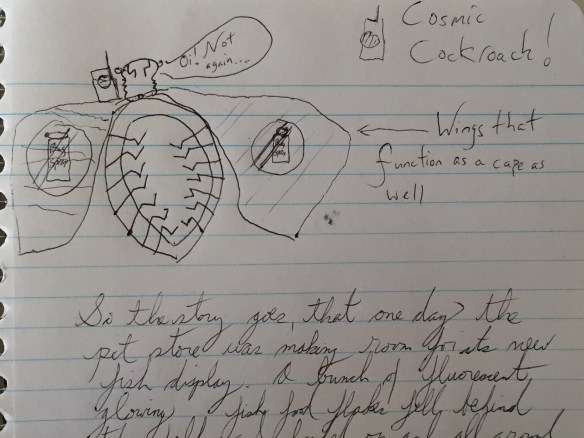 Cosmic
Cockroach!
Oi! Not
again...
Wings that
function as a cape as
well
Bug
Spray
So the story goes, that one day the
pet store was making room for its new
fish display. A bunch of fluorescent,
glowing fish food flakes fell behind
the